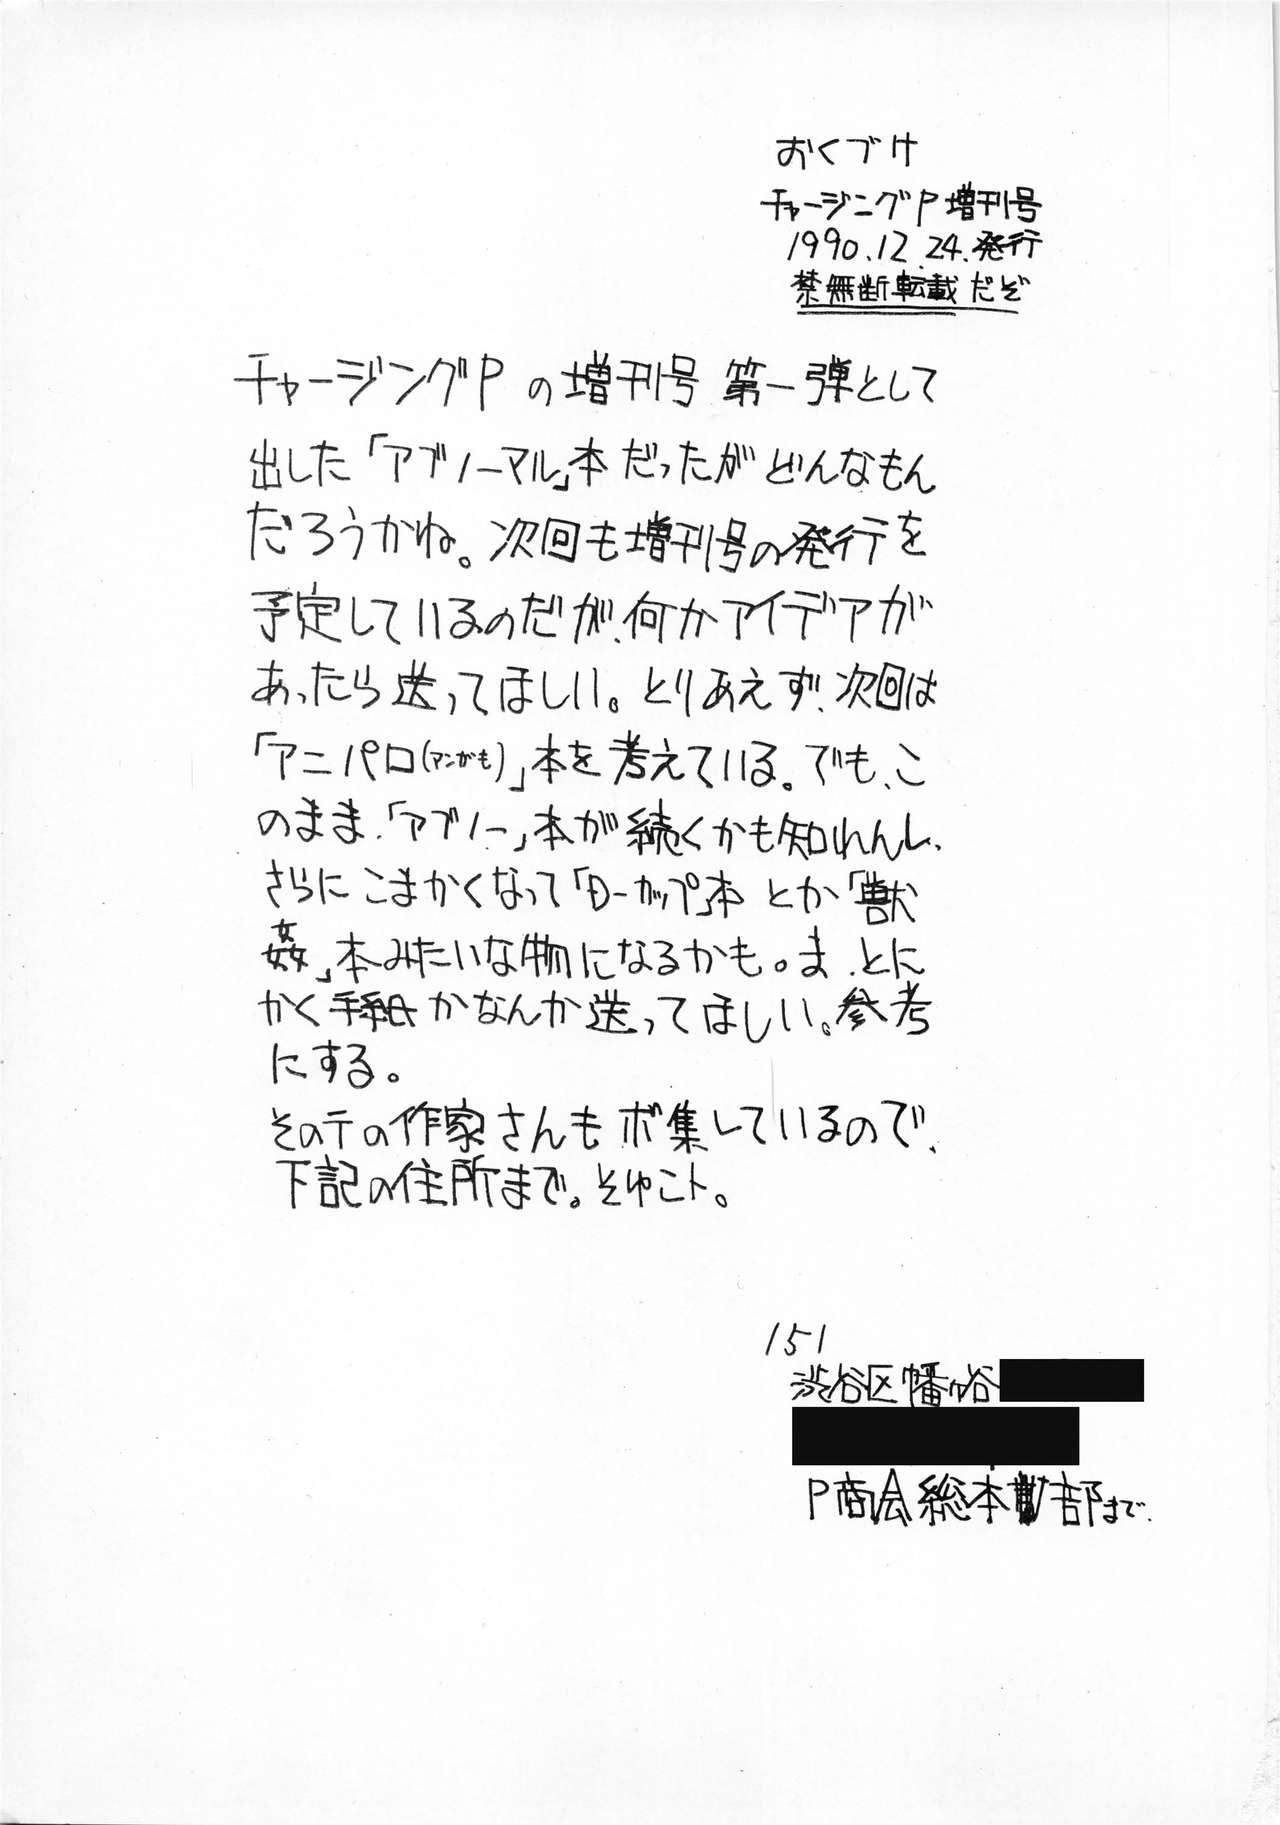 おくづけ
チャージングP 増刊号
1990.12.24.発行
禁無断転載だぞ
チャージングPの増刊号 第一弾として
出した「アブノーマル」本だったがどんなもん
だろうかね。次回も増刊号の発行を
予定しているのだが、何かアイデアが
あったら送ってほしい。とりあえず、次回は
「アニパロ(マンがも)」本を考えている。でも、こ
のまま、「アブノー」本が続くかも知れんし、
さらにこまかくなって「Dーカップ」本とか「獣
姦」本みたいな物になるかも。ま、とに
かく手紙かなんか送ってほしい。参考
にする。
そのテの作家さんもボ集しているので、
下記の住所まで。そゆこト。
151
渋谷区幡ヶ谷
P商会総本部まで.